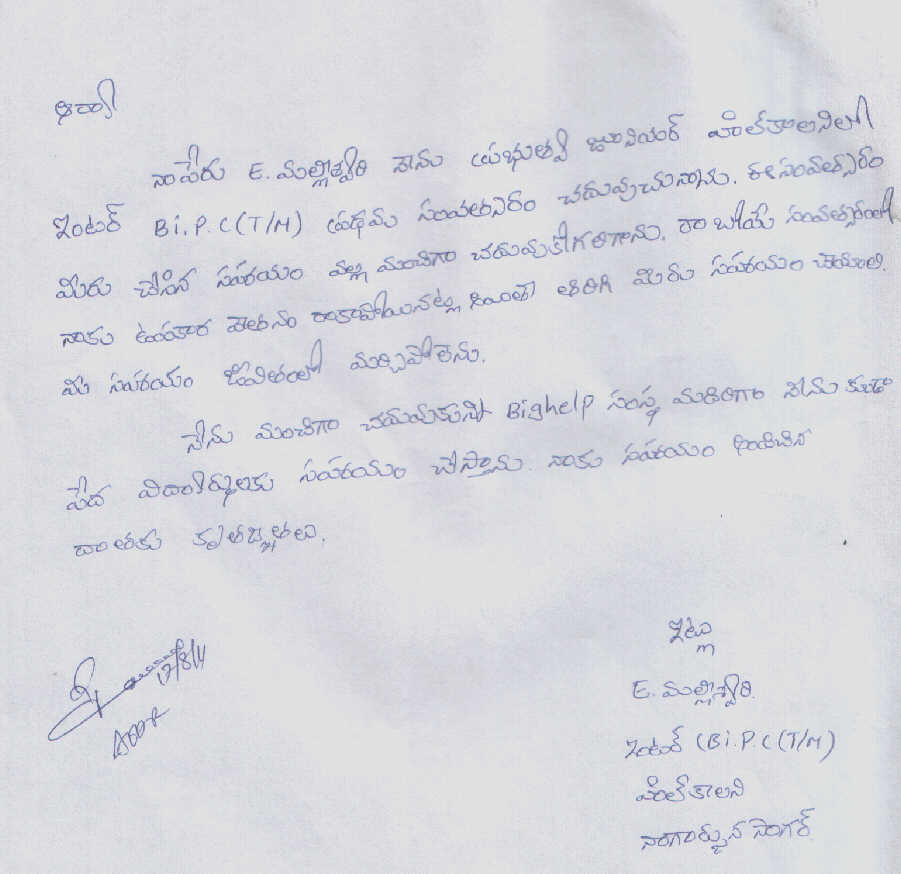 ఆర్యా
నా పేరు E. మల్లీశ్వరి నాను ప్రభుత్వ జూనియర్ హిల్ కాలనిలో
ఇంటర్ Bi.P.C (T/M) ప్రథమ సంవత్సరం చదువుచున్నాను. ఈ సంవత్సరం
మీరు చేసిన సహాయం వల్ల మంచిగా చదువుకోగలిగాను. రాబోయే సంవత్సరంలో
నాకు ఉపకార వేతనం రాకపోయినట్లు తిరిగి మీరు సహాయం చేయాలి.
మీ సహాయం జీవితంలో మర్చిపోలేను.
నేను మంచిగా చదువుకుని Bighelp సంస్థ మదిరిగా నేను కూడా
పేద విద్యార్థులకు సహాయం చేస్తాను. నాకు సహాయం అందించిన
దాతకు కృతజ్ఞతలు.
17/8/11
ఇట్లు
E. మల్లీశ్వరి.
ఇంటర్ (Bi.P.C (T/M)
హిల్ కాలని
నాగార్జున సాగర్.